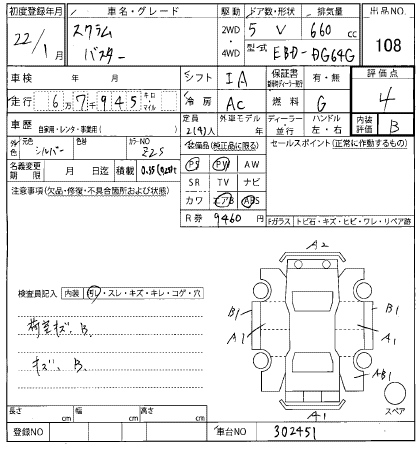 初度登録年月 車名・グレード 駆動 ドア数・形状 排気量 出品NO.
22/1月 スクラム バスター 2WD ・ 4WD 5 V 660 cc 108
型式 EBD-DG64G
車検 年 月 シフト IA 保証書 有・無 評価点
走行 6万7千945 キロ・マイル 冷房 AC 燃料 G 4
車歴 自家用・レンタ・事業用( ) 定員 2(4)人 外車モデル 年 ディーラー・並行 ハンドル 左・右 内装評価 B
外色 元色 シルバー 色替 カラーNO Z2S 装備品(純正品に限る) セールスポイント(正常に作動するもの)
名義変更期限 月 日迄 積載 PS PW AW
注意事項(欠品・修復・不具合箇所および状態) SR TV ナビ
カワ エアB ABS
R券 9460 円
Fガラス トビ石・キズ・ヒビ・ワレ・リペア跡
A2
検査員記入 内装 汚レ・スレ・キズ・キレ・コゲ・穴
B1 B1
A1 A1
荷室キズ、B.
キズ、B.
AB1
スペア
A1
長さ cm 幅 cm 高さ cm
登録NO 車台NO 302451